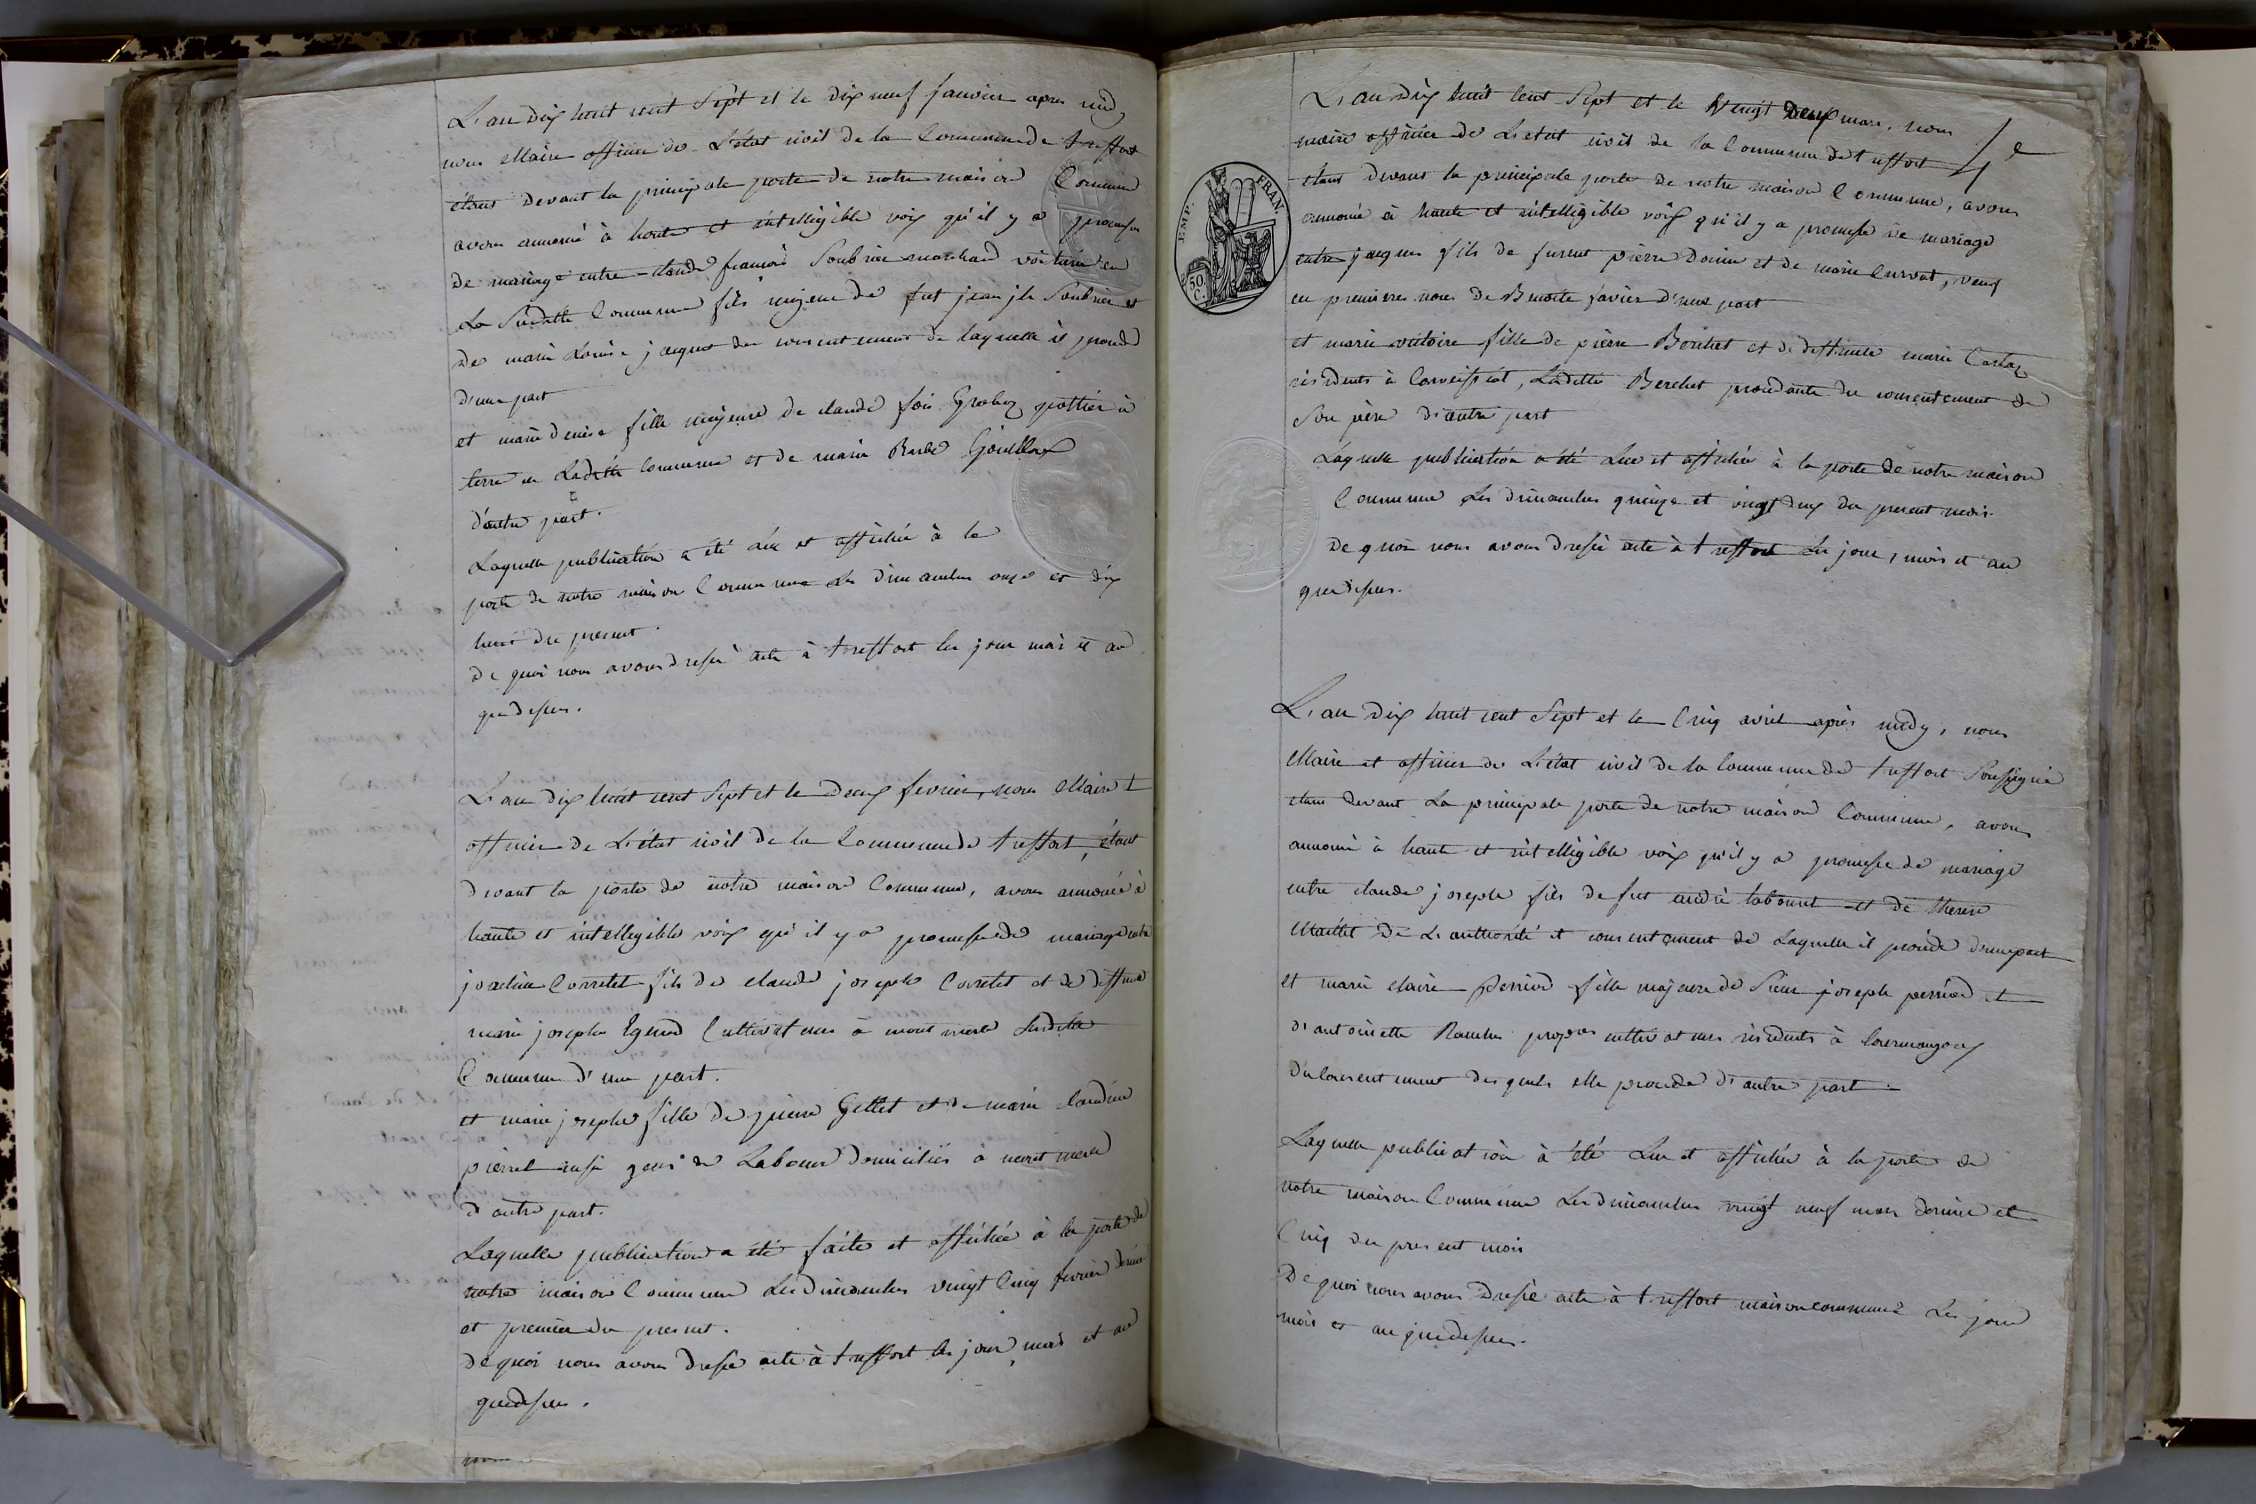 L'an dix huit cent Sept et le dix neuf janvier apres midy
nous Maire officier de L'état civil de la Commune de treffort
étans devant la principale porte de notre maison Commune
avons annoncé à haute et intelligible voix qu'il y a promesse
de mariage entre claude françois Soubrier marchand voiturier en
La Susditte Commune fils majeur de feut jean jh Soubrier et
de marie Louise jacquet du consentement de laquelle il procede
d'une part
et marie denise fille majeure de claude fois Graboz pottier à
terre en Laditte Commune et de marie Barbe Gouilloux
d'autre part.
Laquelle publication a été Lue et affichée à la
porte de notre maison Commune Les dimanches onze et dix
huit du present.
de quoi nous avons dressé acte à treffort les jour mois et an
que dessus.
L'an dix huit cent Sept et le deux fevrier, nous Maire et
officier de L'état civil de la Commune de treffort, étant
devant la porte de notre maison Commune, avons annoncé à
haute et intelligible voix qu'il y a promesse de mariage entre
Corretet fils de claude joseph Corretet et de deffunte
marie josephe Cultivateurs à mont merle Susditte
Commune d'une part.
et marie josephe fille de pierre Gillet et de marie claudine
aussi gens de Labour domiciliés à mont merle
d'autre part.
Laquelle publication a été faite et affichée à la porte de
notre maison Commune Les dimanches vingt Cinq fevrier dernier
et premier du present.
de quoi nous avons dressé acte à treffort les jour, mois et an
que dessus.
L'an dix huit Cent Sept et le Vingt deux mars, nous
maire officier de L'état civil de la Commune de treffort
étans devant la principale porte de notre maison Commune, avons
annoncé à haute et intelligible voix qu'il y a promesse de mariage
entre jacques fils de furent pierre et de marie Curvat, veuf
en premieres noces de Benoite favier d'une part
et marie victoire fille de pierre Berchet et de deffunte marie
résidents à Corveissiat, Laditte Berchet procedante du consentement de
Son père d'autre part
Laquelle publication a été Lue et affichée à la porte de notre maison
Commune Les dimanches quinze et vingt deux du present mois.
De quoi nous avons dressé acte à treffort Les jour, mois et an
que dessus.
EMP. FRAN.
50 C.
L'an dix huit cent Sept et le Cinq avril après midy, nous
Maire et officier de L'état civil de la Commune de treffort Soussigné
étans devant La principale porte de notre maison Commune, avons
annoncé à haute et intelligible voix qu'il y a promesse de mariage
entre claude joseph fils de feut andré tabouret et de therese
Maillet de L'authorité et consentement de Laquelle il procède d'une part
et marie claire perriod fille majeure de Sieur joseph perriod et
d'antoinette propres cultivateurs résidents à Courmangoux
du Consentement desquels elle procede d'autre part.
Laquelle publication à été Lue et affichée à la porte de
notre maison Commune Les dimanches vingt neuf mars dernier et
Cinq du present mois
De quoi nous avons dressé acte à treffort maison commune Les jour
mois et an que dessus.